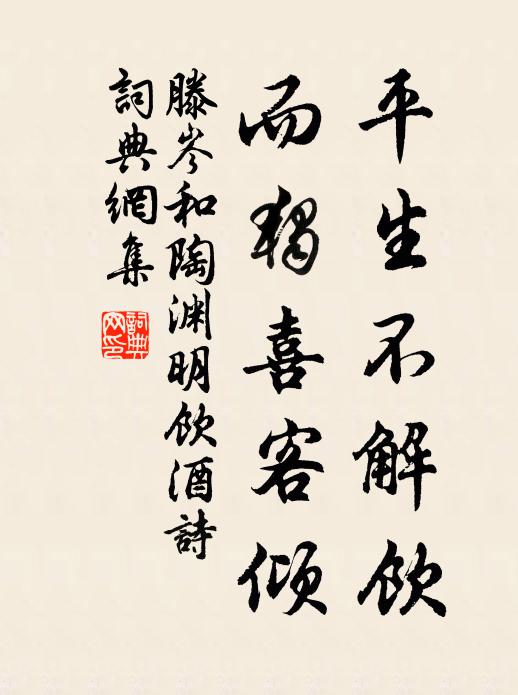 平生不解飲
而獨喜客傾
滕岑和陶渊明飲酒詩
詞典網集
詞典
网印